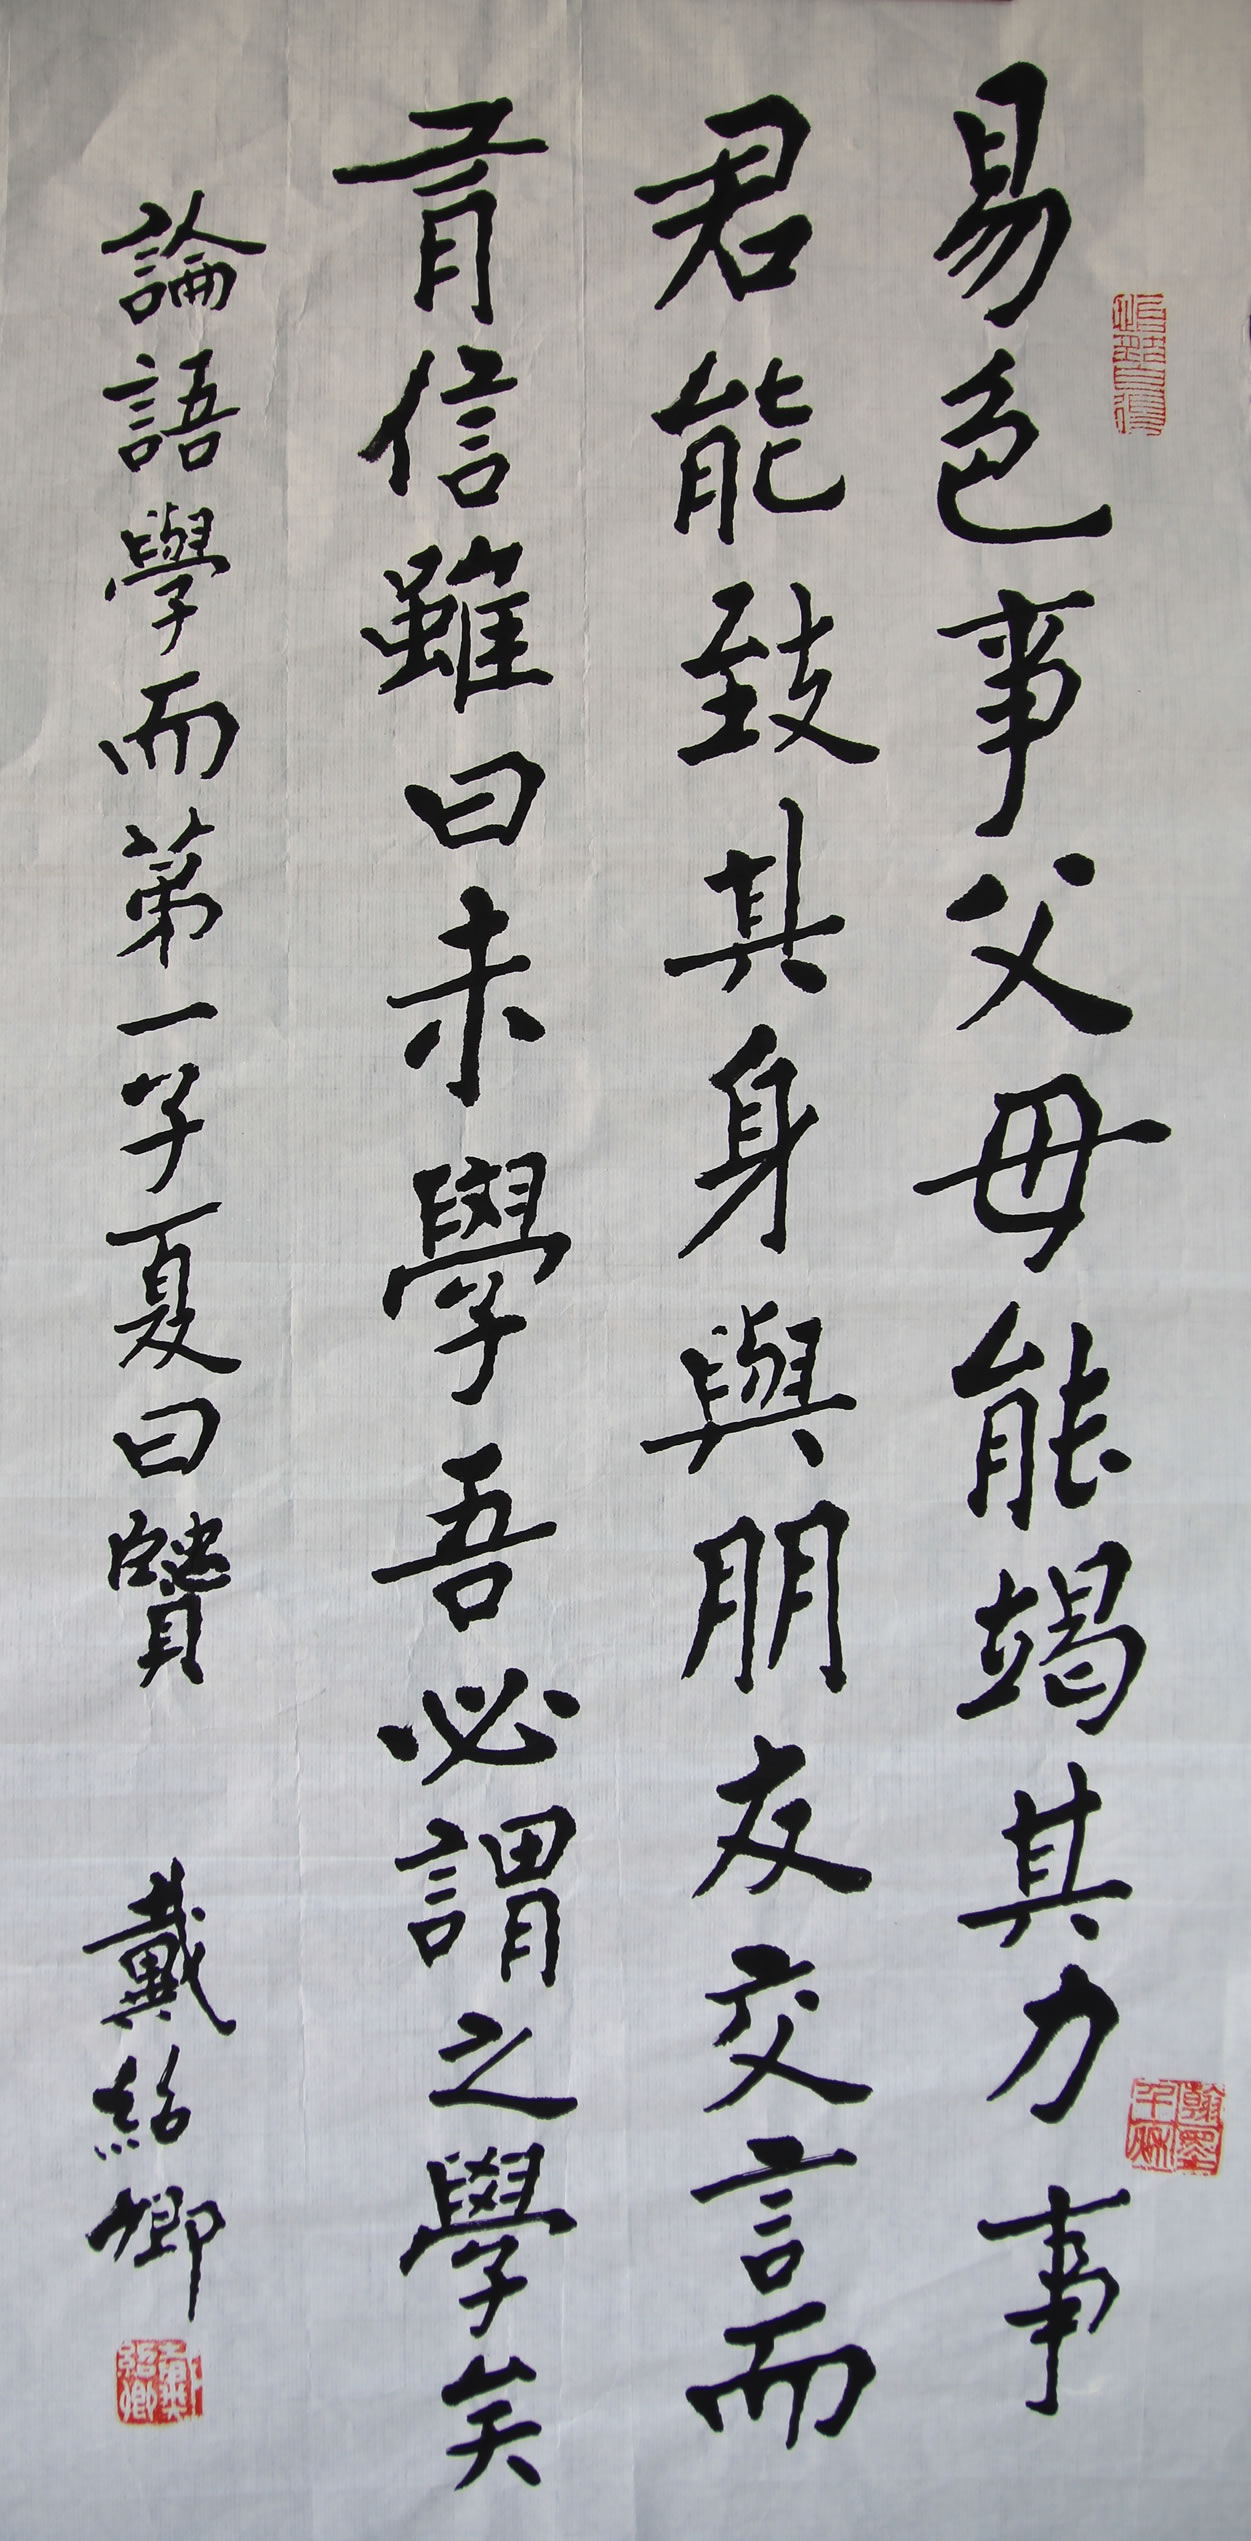 易色事父母能竭其力事
君能致其身與朋友交言而
有信雖曰未學吾必謂之學矣
論語學而第一子夏曰賢賢
戴紹卿
翰墨
戴紹卿